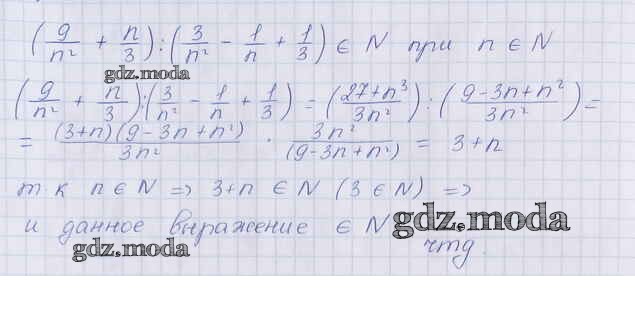 (9/n² + n/3) : (3/n² - 1/n + 1/3) ∈ N при n ∈ N
gdz.moda
(9/n² + n/3) : (3/n² - 1/n + 1/3) = ((27+n³)/3n²) : ((9-3n+n²)/3n²) =
= (3+n)(9-3n+n²)/3n² · 3n²/(9-3n+n²) = 3+n
т.к n ∈ N => 3+n ∈ N (3 ∈ N) =>
и данное выражение ∈ N
gdz.moda
чтд.
gdz.moda